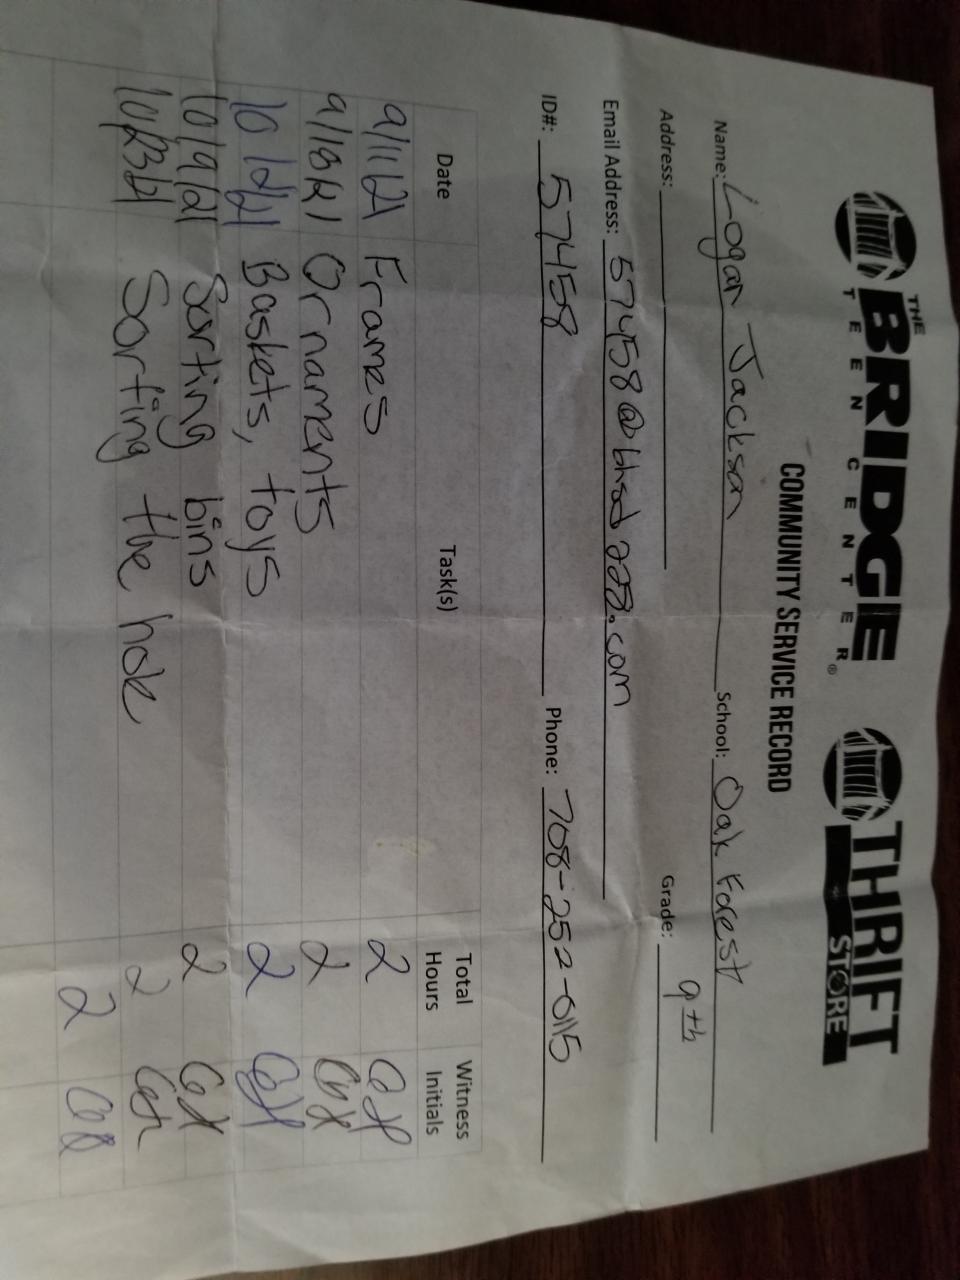 THE BRIDGE TEEN CENTER® THRIFT STORE
COMMUNITY SERVICE RECORD
Name: Logan Jackson School: Oak Forest
Address: Grade: 9th
Email Address: 57458@bhsd228.com
ID#: 57458 Phone: 708-252-0115
Date Task(s) Total Hours Witness Initials
9/11/21 Frames 2
9/18/21 Ornaments 2
10/2/21 Baskets, toys 2
10/9/21 Sorting bins 2
10/23/21 Sorting the hole 2
2